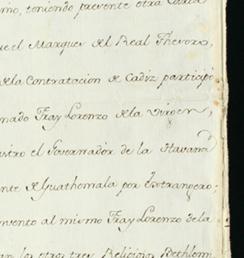 teniendo presente otra
el Marques del Real Thesoro,
de la Contratacion de Cadiz participó
nado Fray Lorenzo de la Virgen,
itro el Governador de la Havana
nte de Guathemala por Extrangero;
nvento al mismo Fray Lorenzo dela
los otros tres Religios Bethlem